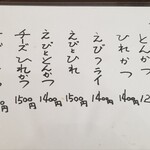 とんかつ 12
ひれかつ 1400円
えびフライ 1400円
えびとひれ 1500円
えびととんかつ 1400円
チーズひれかつ 1500円